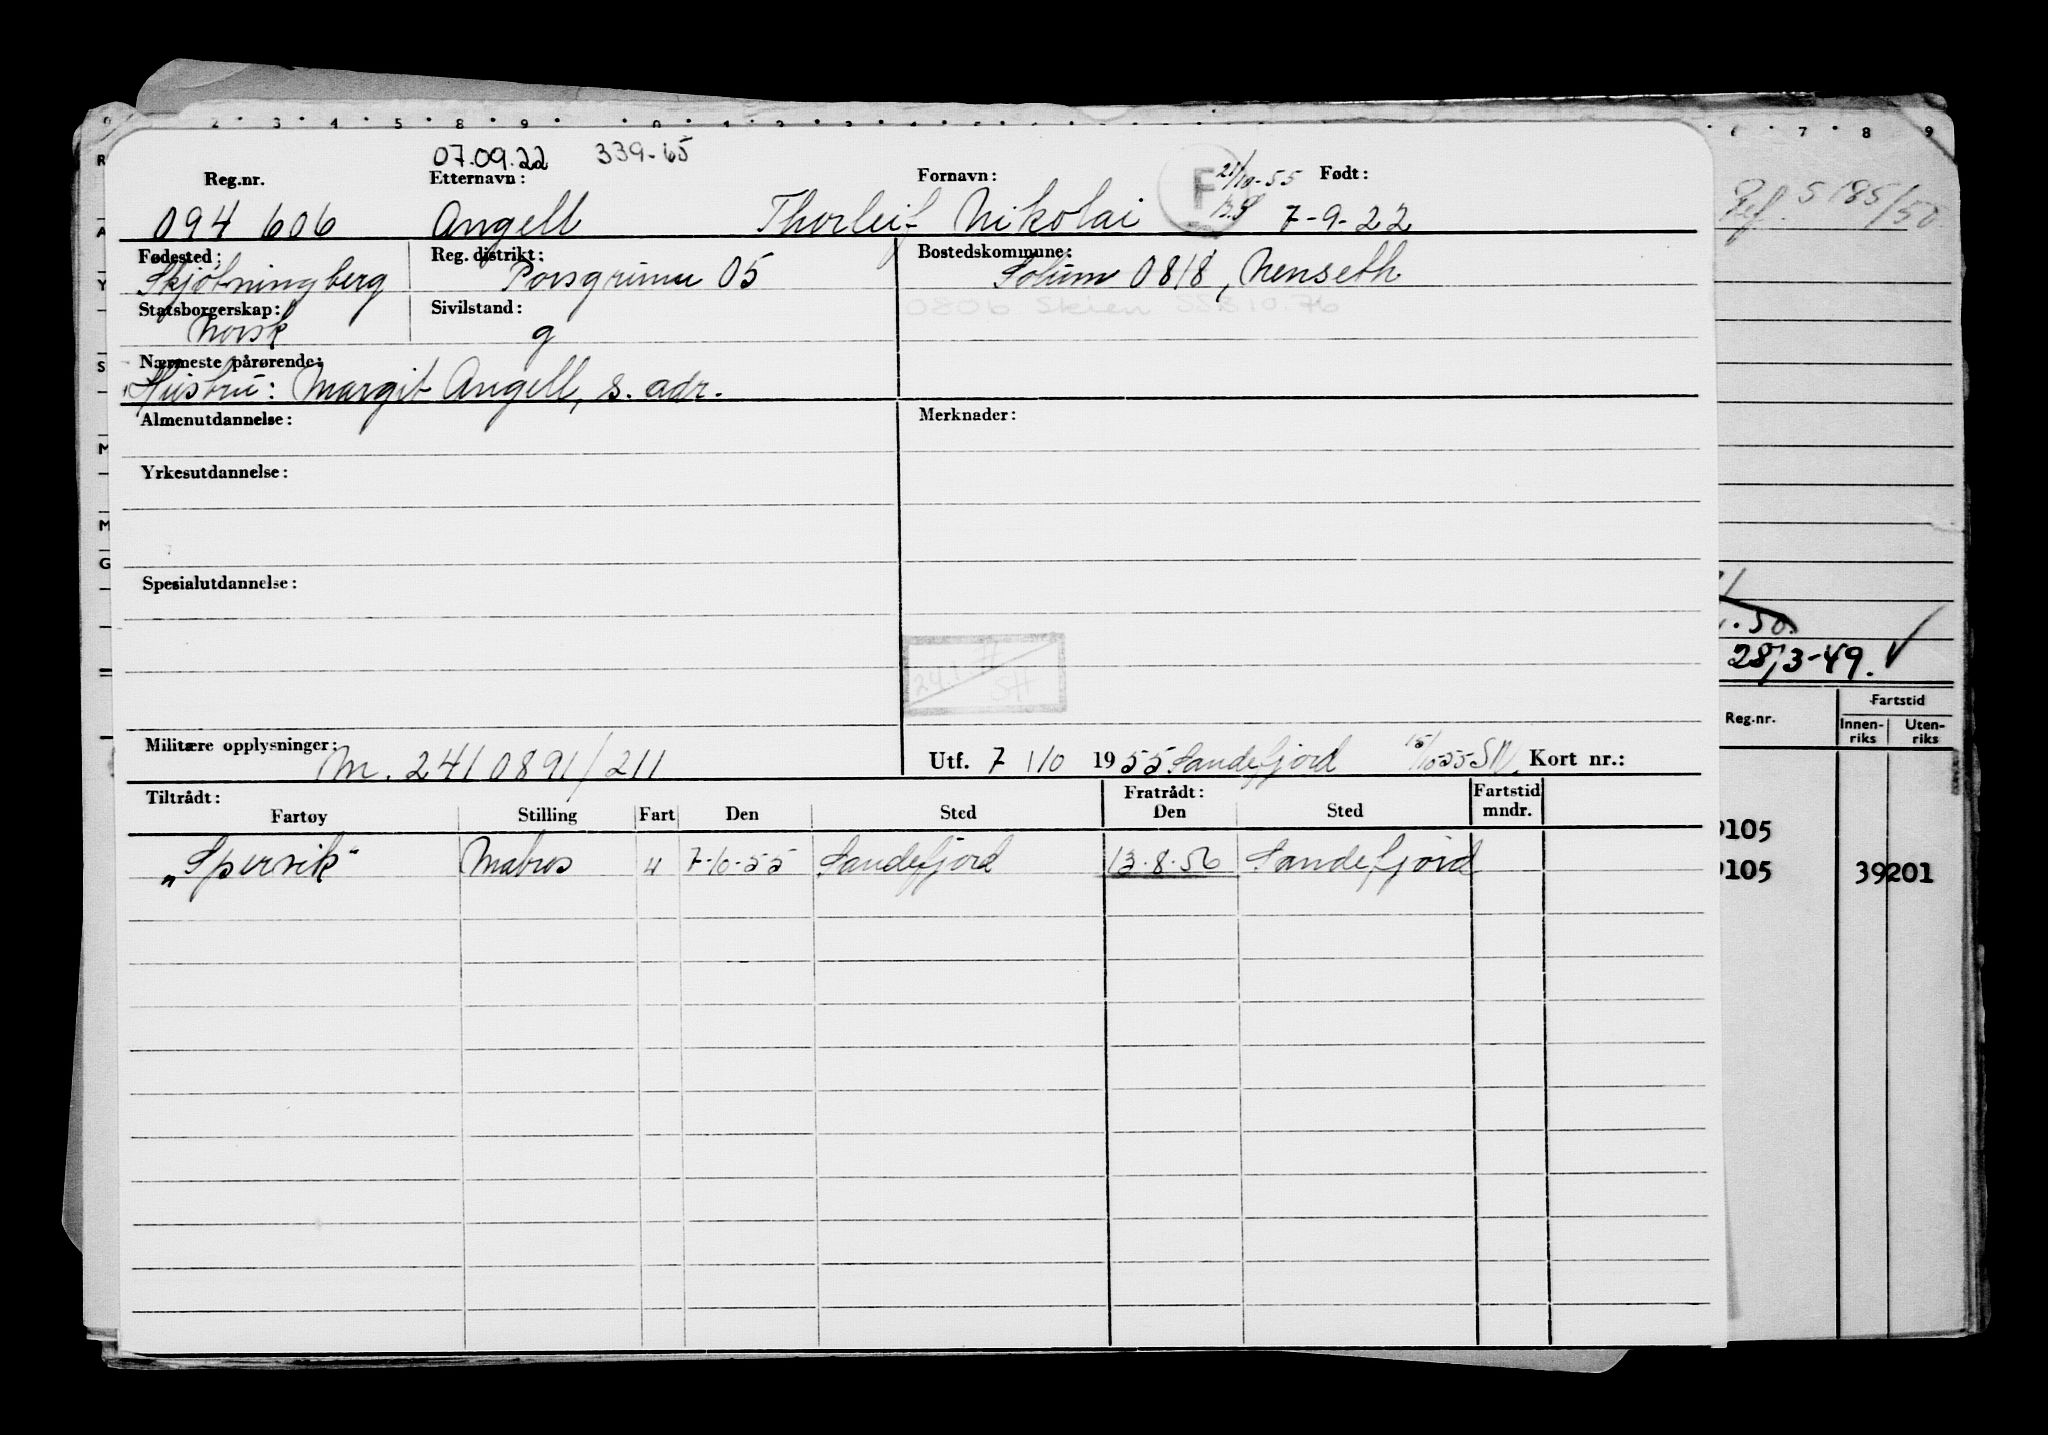 07.09.22 339-65
Reg.nr. Etternavn: Fornavn: F 21/10-55 Født:
094 606 Angell Thorleif Nikolai 7-9-22
Fødested: Reg. distrikt: Bostedskommune:
Skjøtningberg Porsgrunn 05 Solum 0818, Nenseth
Statsborgerskap: Sivilstand: 0806 Skien SSB 10.76
Norsk g
Nærmeste pårørende:
Hustru: Margit Angell, s. adr.
Almenutdannelse: Merknader:
Yrkesutdannelse:
Spesialutdannelse:
Militære opplysninger: M. 2410891/211 Utf. 7/10 1955 Sandefjord 15/10 55 Kort nr.:
Tiltrådt: Fratrådt: Fartstid
Fartøy Stilling Fart Den Sted Den Sted mndr.
„Spervik" Matros u 7-10-55 Sandefjord 13.8.56 Sandefjord
2 3 4 5 8 9 7 8 9
R
A
Y
S
M
M
G
Ref. 5185/50
.50.
28/3-49.
Reg.nr. Fartstid
Innen-riks Uten-riks
9105
9105 39201